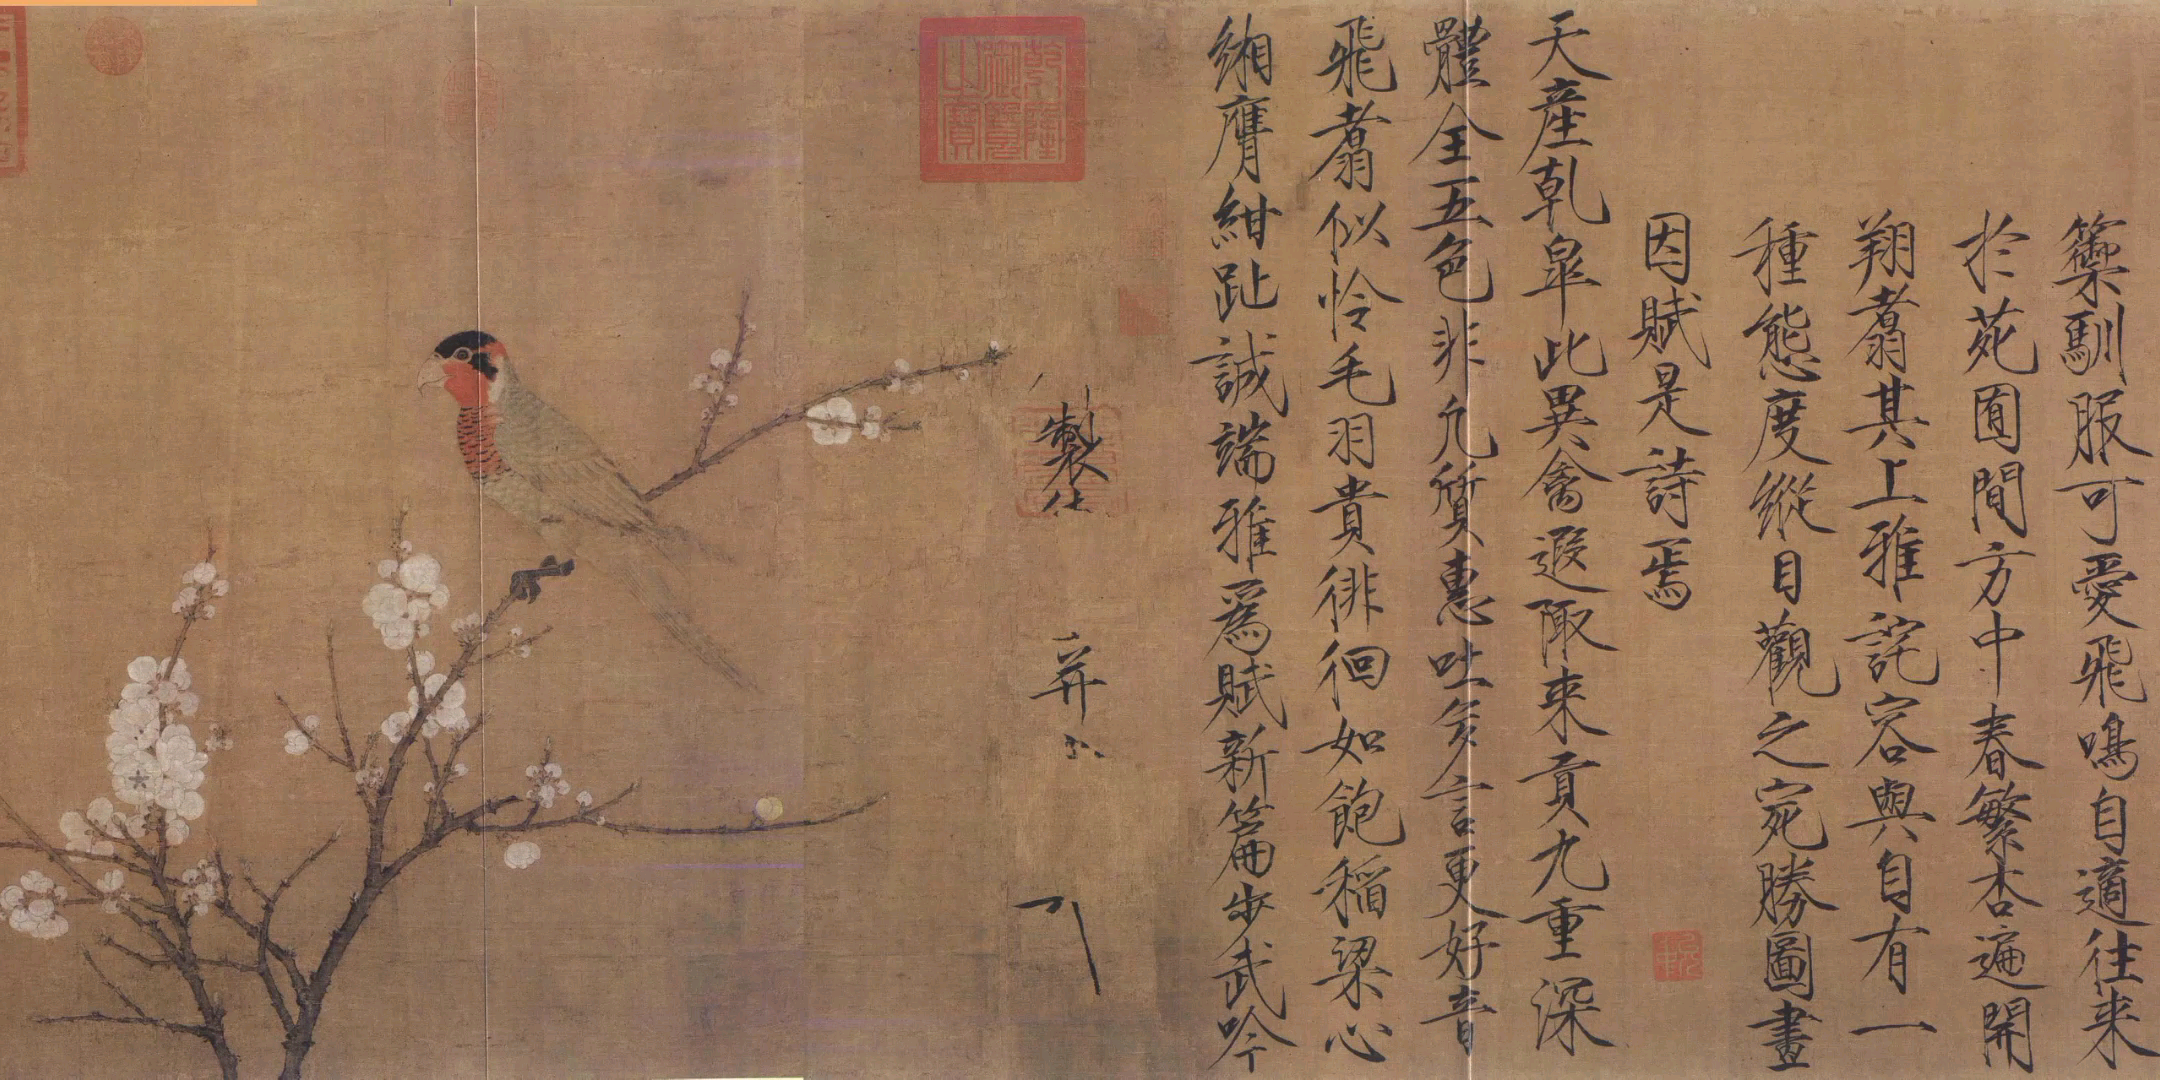 籞馴服可愛飛鳴自適往来
於苑囿間方中春繁杏遍開
翔翥其上雅詫容與自有一
種態度縱目觀之宛勝圖畫
因賦是詩焉
天産乹皐此異禽遐陬来貢九重深
體全五色非凡質惠吐多言更好音
飛翥似怜毛羽貴徘徊如飽稻粱心
緗膺紺趾誠端雅爲賦新篇步武吟
製
并
乾隆御覽之寶